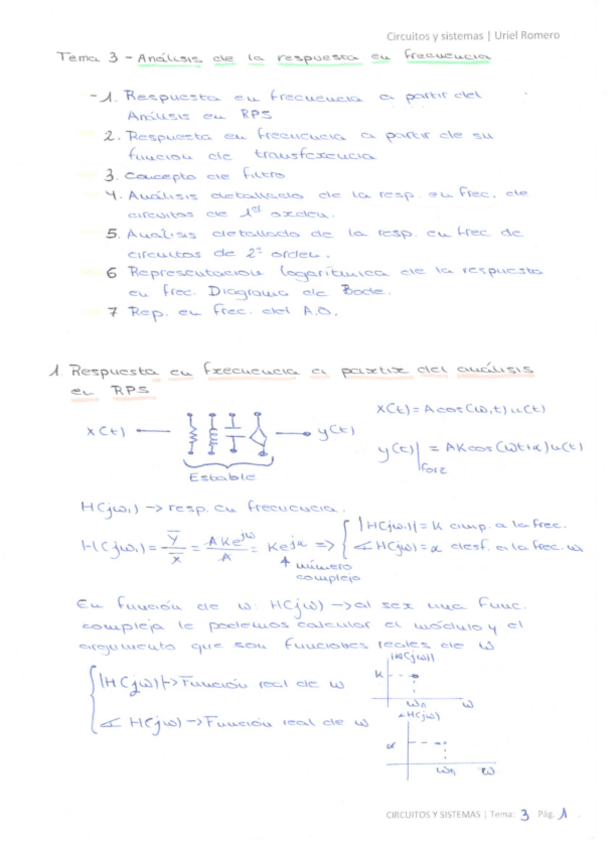 Circuitos y sistemas | Uriel Romero
Tema 3 - Análisis de la respuesta en frecuencia
-1. Respuesta en frecuencia a partir del
Análisis en RPS
2. Respuesta en frecuencia a partir de su
función de transferencia
3. Concepto de filtro
4. Análisis detallado de la resp. en frec. de
circuitos de 1er orden.
5. Análisis detallado de la resp. en frec de
circuitos de 2º orden.
6 Representación logarítmica de la respuesta
en frec. Diagrama de Bode.
7 Rep. en frec. del A.O.
1 Respuesta en frecuencia a partir del análisis
en RPS
x(t) y(t)
Estable
x(t) = A cos(ω₁t) u(t)
y(t)|forz = AK cos(ωt+α) u(t)
H(jω₁) -> resp. en frecuencia.
H(jω₁) = Y̅/X̅ = AKe^jω/A = Ke^jα => { |H(jω₁)| = K amp. a la frec.
∡H(jω) = α desf. a la frec. ω
número
complejo
En función de ω: H(jω) -> al ser una func.
compleja le podemos calcular el módulo y el
argumento que son funciones reales de ω
|H(jω)| -> Función real de ω
∡ H(jω) -> Función real de ω
|H(jω)|
K
ω₁ ω
∡H(jω)
α
ω₁ ω
CIRCUITOS Y SISTEMAS | Tema: 3 Pág. 1